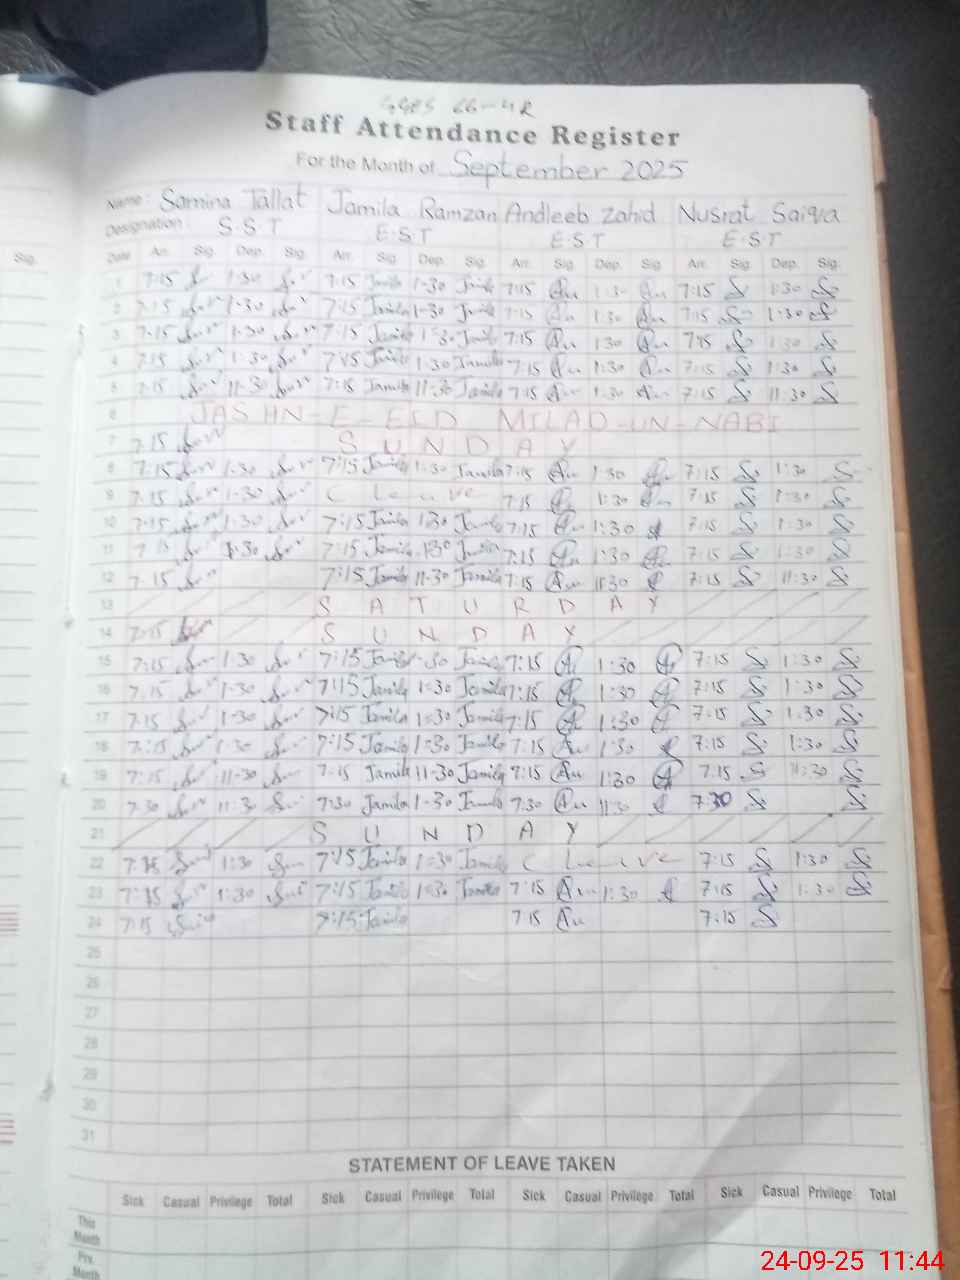 GGES 66-4R
Staff Attendance Register
For the Month of September 2025
Name: Samina Tallat Jamila Ramzan Andleeb Zahid Nusrat Saiqa
Designation: S.S.T E.S.T E.S.T E.S.T
Sig. Date Arr. Sig. Dep. Sig. Arr. Sig. Dep. Sig. Arr. Sig. Dep. Sig. Arr. Sig. Dep. Sig.
1 7:15 1-30 7:15 Jamila 1-30 Jamila 7:15 1:30 7:15 1:30
2 7:15 1-30 7:15 Jamila 1-30 Jamila 7:15 1:30 7:15 1:30
3 7:15 1-30 7:15 Jamila 1-30 Jamila 7:15 1:30 7:15 1:30
4 7:15 1-30 7:15 Jamila 1-30 Jamila 7:15 1:30 7:15 1:30
5 7:15 11-30 7:15 Jamila 11-30 Jamila 7:15 1:30 7:15 11:30
6 JASHN-E-EID MILAD-UN-NABI
7 7:15 SUNDAY
8 7:15 1-30 7:15 Jamila 1-30 Jamila 7:15 1:30 7:15 1:30
9 7:15 1-30 C Leave 7:15 1:30 7:15 1:30
10 7:15 1-30 7:15 Jamila 1:30 Jamila 7:15 1:30 7:15 1:30
11 7:15 1:30 7:15 Jamila 1:30 Jamila 7:15 1:30 7:15 1:30
12 7:15 7:15 Jamila 11-30 Jamila 7:15 11:30 7:15 11:30
13 SATURDAY
14 7:15 SUNDAY
15 7:15 1-30 7:15 Jamila -30 Jamila 7:15 1:30 7:15 1:30
16 7:15 1-30 7:15 Jamila 1-30 Jamila 7:15 1:30 7:15 1:30
17 7:15 1-30 7:15 Jamila 1-30 Jamila 7:15 1:30 7:15 1:30
18 7:15 1-30 7:15 Jamila 1-30 Jamila 7:15 1:30 7:15 1:30
19 7:15 11-30 7:15 Jamila 11-30 Jamila 7:15 1:30 7:15 11:30
20 7:30 11:3 7:30 Jamila 1-30 Jamila 7:30 11:30 7:30
21 SUNDAY
22 7:15 1:30 7:15 Jamila 1-30 Jamila C Leave 7:15 1:30
23 7:15 1:30 7:15 Jamila 1-30 Jamila 7:15 1:30 7:15 1:30
24 7:15 7:15 Jamila 7:15 7:15
25
26
27
28
29
30
31
STATEMENT OF LEAVE TAKEN
Sick Casual Privilege Total Sick Casual Privilege Total Sick Casual Privilege Total Sick Casual Privilege Total
This Month
Prv. Month
24-09-25 11:44